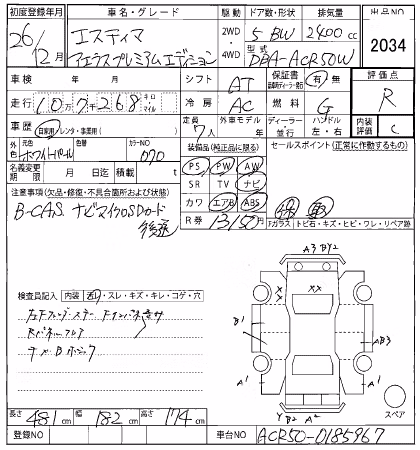 初度登録年月 車名・グレード 駆動 ドア数・形状 排気量 出品NO
26年 エスティマ 2WD・4WD 5 BW 2400cc 2034
12月 アエラスプレミアムエディション 型式 DBA-ACR50W
車検 年 月 日 シフト AT 保証書 有 無 評価点
走行 10万7千268 キロ・マイル 冷房 AC 燃料 G R
車歴 自家用 レンタ・事業用( ) 定員 7人 外車モデル年 ディーラー・並行 ハンドル 左・右 内装評価 C
外色 元色 ホワイトパール 色替 カラーNO 070 装備品(純正品に限る) セールスポイント(正常に作動するもの)
名義変更期限 月 日迄 積載 t PS PW AW
注意事項(欠品・修復・不具合箇所および状態) SR TV ナビ
B-CAS ナビマイクロSDカード カワ エアB ABS
後送 R券 13150円 Fガラス トビ石・キズ・ヒビ・ワレ・リペア跡
検査員記入 内装 スレ・キズ・キレ・コゲ・穴
A3 B Y2
B1 A B3
A1 A1
Y B2 A2
スペア
長さ 481cm 幅 182cm 高さ 174cm
登録NO 車台NO ACR50-0185967